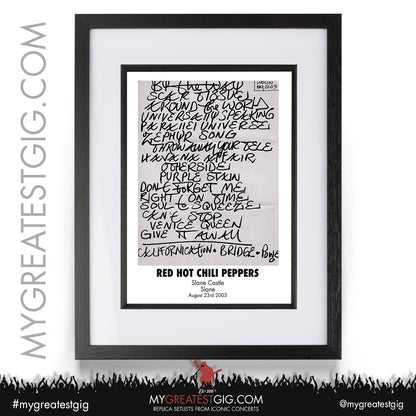 MYGREATESTGIG.COM
BY THE WAY
SCAR TISSUE
AROUND the WORLD
UNIVERSALLY SPEAKING
PARALLEL UNIVERSE
ZEPHYR SONG
THROW AWAY YOUR TELE
HAVANA AFFAIR
OTHERSIDE
PURPLE STAIN
DON'T FORGET ME
RIGHT ON TIME
SOUL to SQUEEZE
CAN'T STOP
VENICE QUEEN
GIVE IT AWAY
CALIFORNICATION • BRIDGE •
RED HOT CHILI PEPPERS
Slane Castle
Slane
August 23rd 2003
MYGREATESTGIG.COM
REPLICA SETLISTS FROM ICONIC CONCERTS
#mygreatestgig
@mygreatestgig